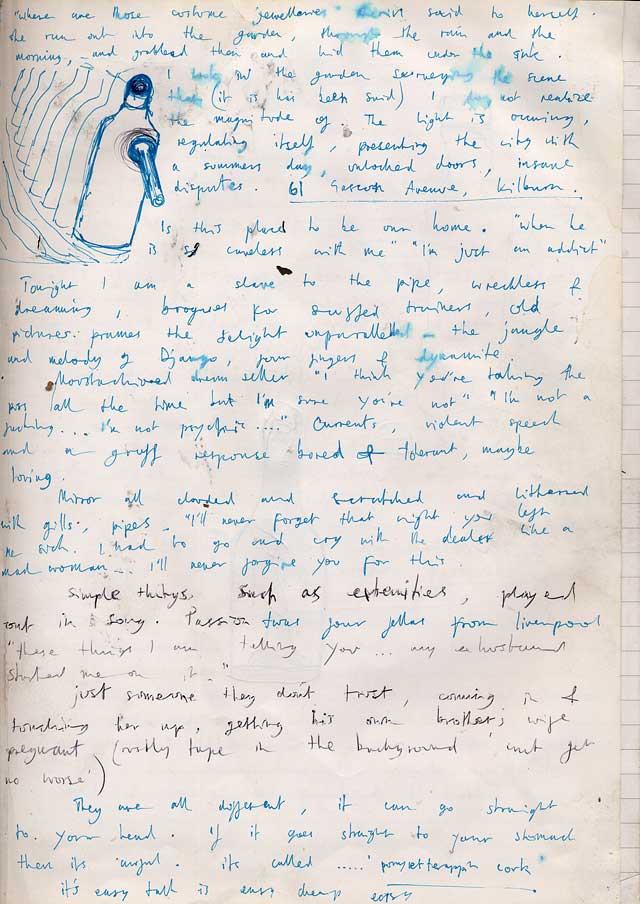 "where are those costume jewellaries" said to herself.
She run out into the garden, through the rain and the
morning, and grabbed them and hid them under the sink.
I look in the garden surveying the scene
that (it is has been said) I do not realize
the magnitude of. The light is coming,
regulating itself, presenting the city with
a summers day, unlocked doors, insane
disputes. 61 Gascony Avenue, Kilburn.
Is this placed to be our home. "when he
is so careless with me" "I'm just an addict"
Tonight I am a slave to the pipe, wreckless &
dreaming, brogues for scuffed trainers, old
pictures. the delight unparalleled – the jangle
and melody of Django, four fingers & dynamite.
Moustachioed dream seller "I think you're taking the
piss all the time but I'm sure you're not" "I'm not a
fucking ... I'm not psychic ...." Currents, violent speech
and a gruff response bored & tolerant, maybe
loving.
Mirror all clouded and scratched and
with gills, pipes. "I'll never forget that night you left
me sick. I had to go and cry with the dealer like a
mad woman... I'll never forgive you for this.
Simple things. Such as extremities, played
out in song. Passion twas your fellas from liverpool
"these things I am telling you ... my exhusband
started me on it."
just someone they don't trust, coming in &
touching her up, getting his own brother's wife
pregnant ( tape in the background 'cant get
no worse')
They are all different, it can go straight
to your head. If it goes straight to your stomach
then its awful. its called ..... cork
it's easy talk is easy cheap easy